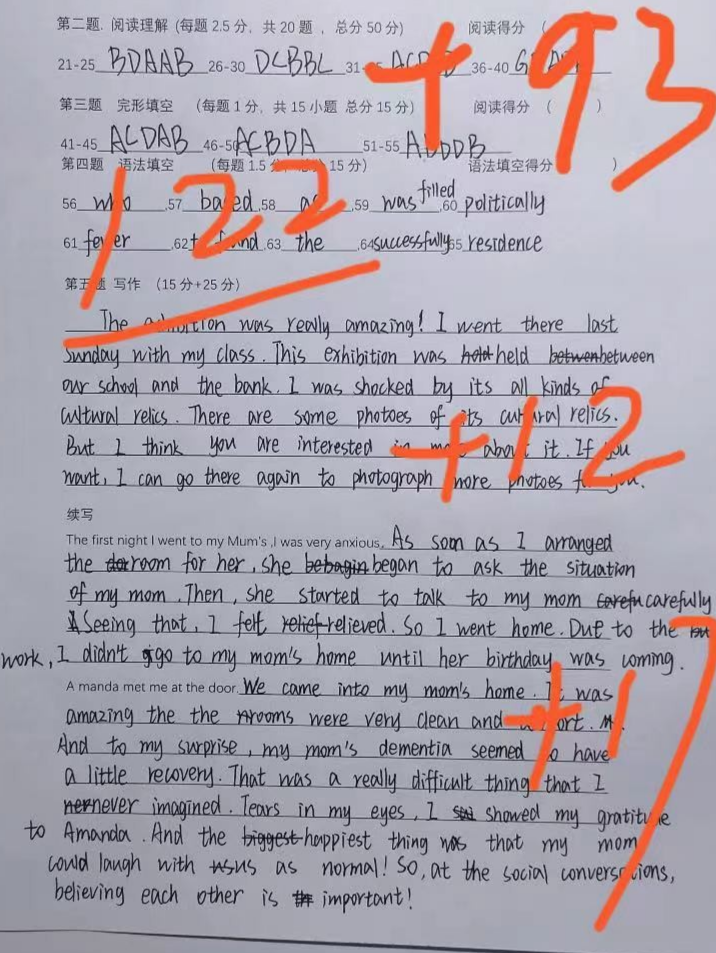 第二题. 阅读理解 (每题 2.5 分, 共 20 题 , 总分 50 分) 阅读得分 (
+93
21-25 BDAAB 26-30 DCBBC 31- 36-40 G
第三题 完形填空 (每题 1 分, 共 15 小题 总分 15 分) 阅读得分 ( )
41-45 ACDAB 46-50 ACBDA 51-55 DDB
第四题 语法填空 (每题 1.5 分, 15 分) 语法填空得分 )
122
56 who 57 based 58 as 59 was filled 60 politically
61 fewer 62 to find 63 the 64 successfully 65 residence
第五题 写作 (15 分+25 分)
The was really amazing! I went there last
Sunday with my class. This exhibition was hold held betwen between
our school and the bank. I was shocked by its all kinds of
cultural relics. There are some photoes of its cultural relics.
+12
But I think you are interested in more about it. If you
want, I can go there again to photograph more photoes for you.
续写
The first night I went to my Mum's ,I was very anxious. As soon as I arranged
the room for her, she began to ask the situation
of my mom. Then, she started to talk to my mom carefu carefully
Seeing that, I felt relief relieved. So I went home. Due to the
work, I didn't go to my mom's home until her birthday was coming.
+17
A manda met me at the door. We came into my mom's home. It was
amazing the the rooms were very clean and
And to my surprise, my mom's dementia seemed to have
a little recovery. That was a really difficult thing that I
never imagined. Tears in my eyes, I showed my gratitude
to Amanda. And the biggest happiest thing was that my mom
could laugh with us as normal! So, at the social conversations,
believing each other is important!